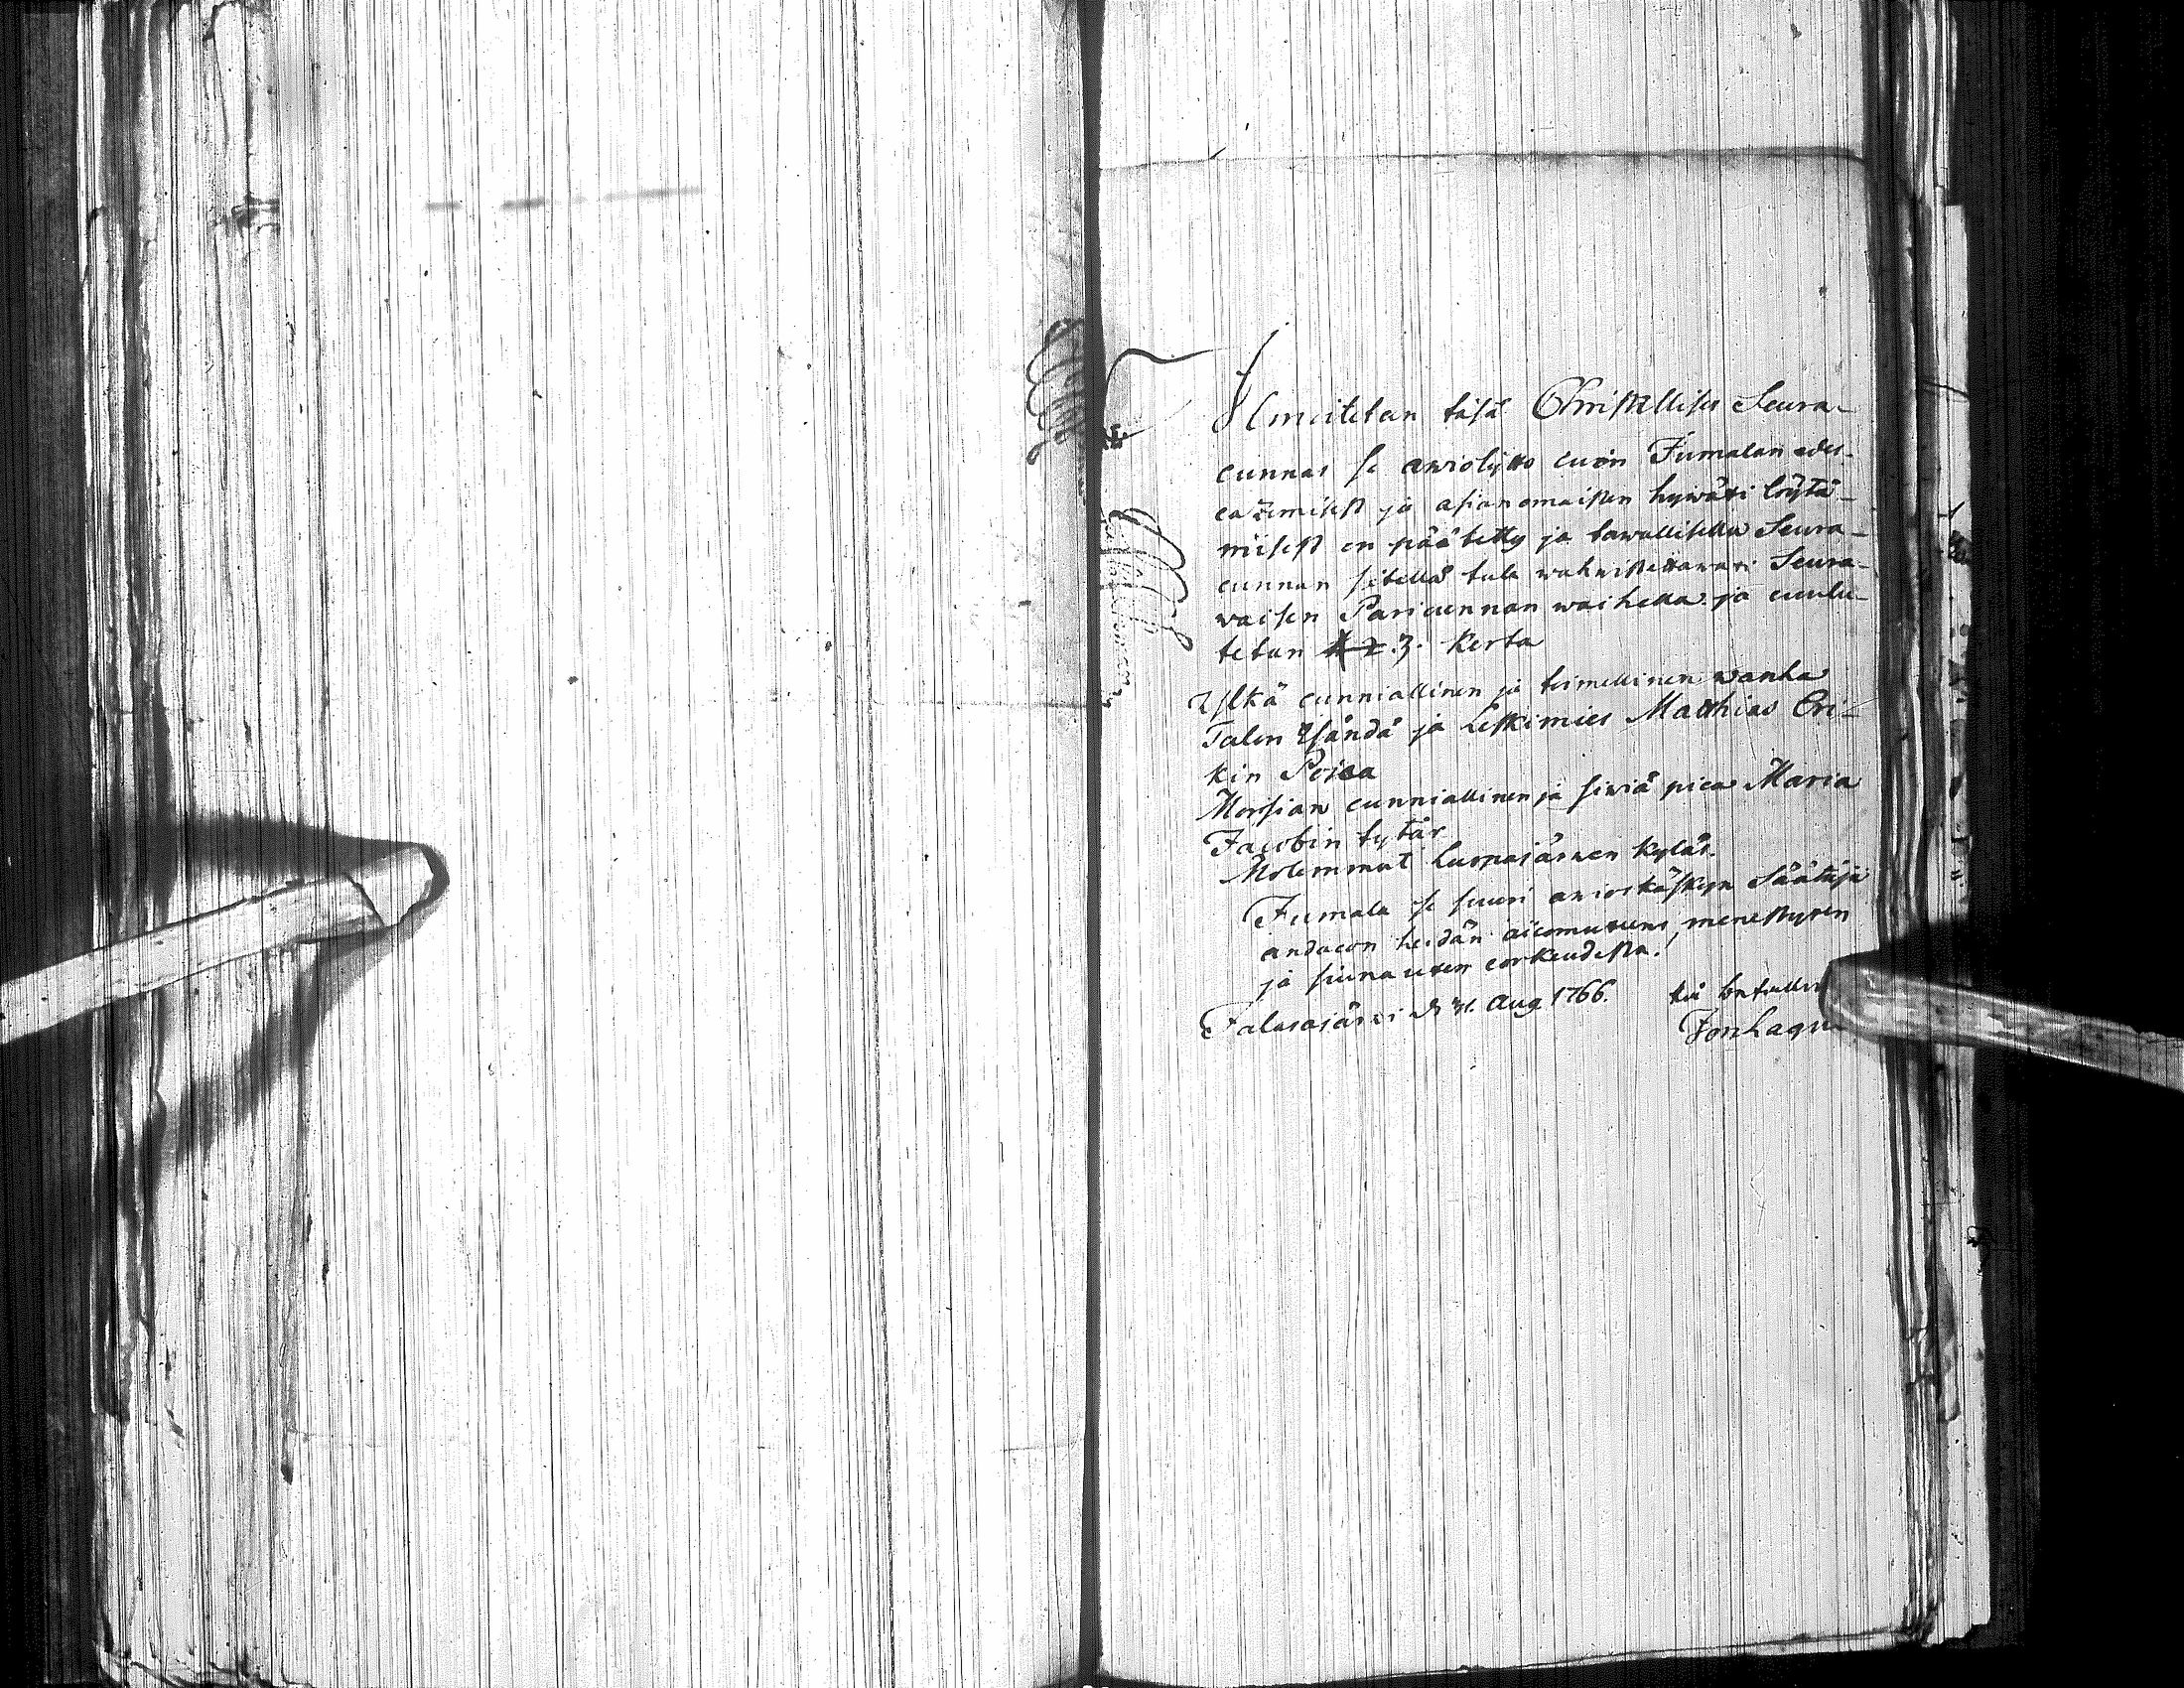 Ilmoitetan täsä Christellises Seura-
cunnas se awiolijtto cuin Jumalan edes-
cazemisest ja asianomaisten hywäxi löytä-
misest on päätetty ja tawallisella Seura-
cunnan sitellä tule wahwistettawaxi Seura-
waisen Paricunnan waihella ja cuulu-
tetan 1 2 .3. Kerta
Yljkä cunniallinen ja toimellinen wanha
Talon Isändä ja Leskimies Matthias Eri-
kin Poica
Morsian cunniallinen ja siwiä pica Maria
Jacobin tytär
Molemmat Luopajärwen Kyläs.
Jumala se suuri awioskäskyn Säätäjä
andacon heidän aicomuxens, menestyxen
ja siunauxen corkeudesta!
Jalasjärwi d. 31. Aug 1766.